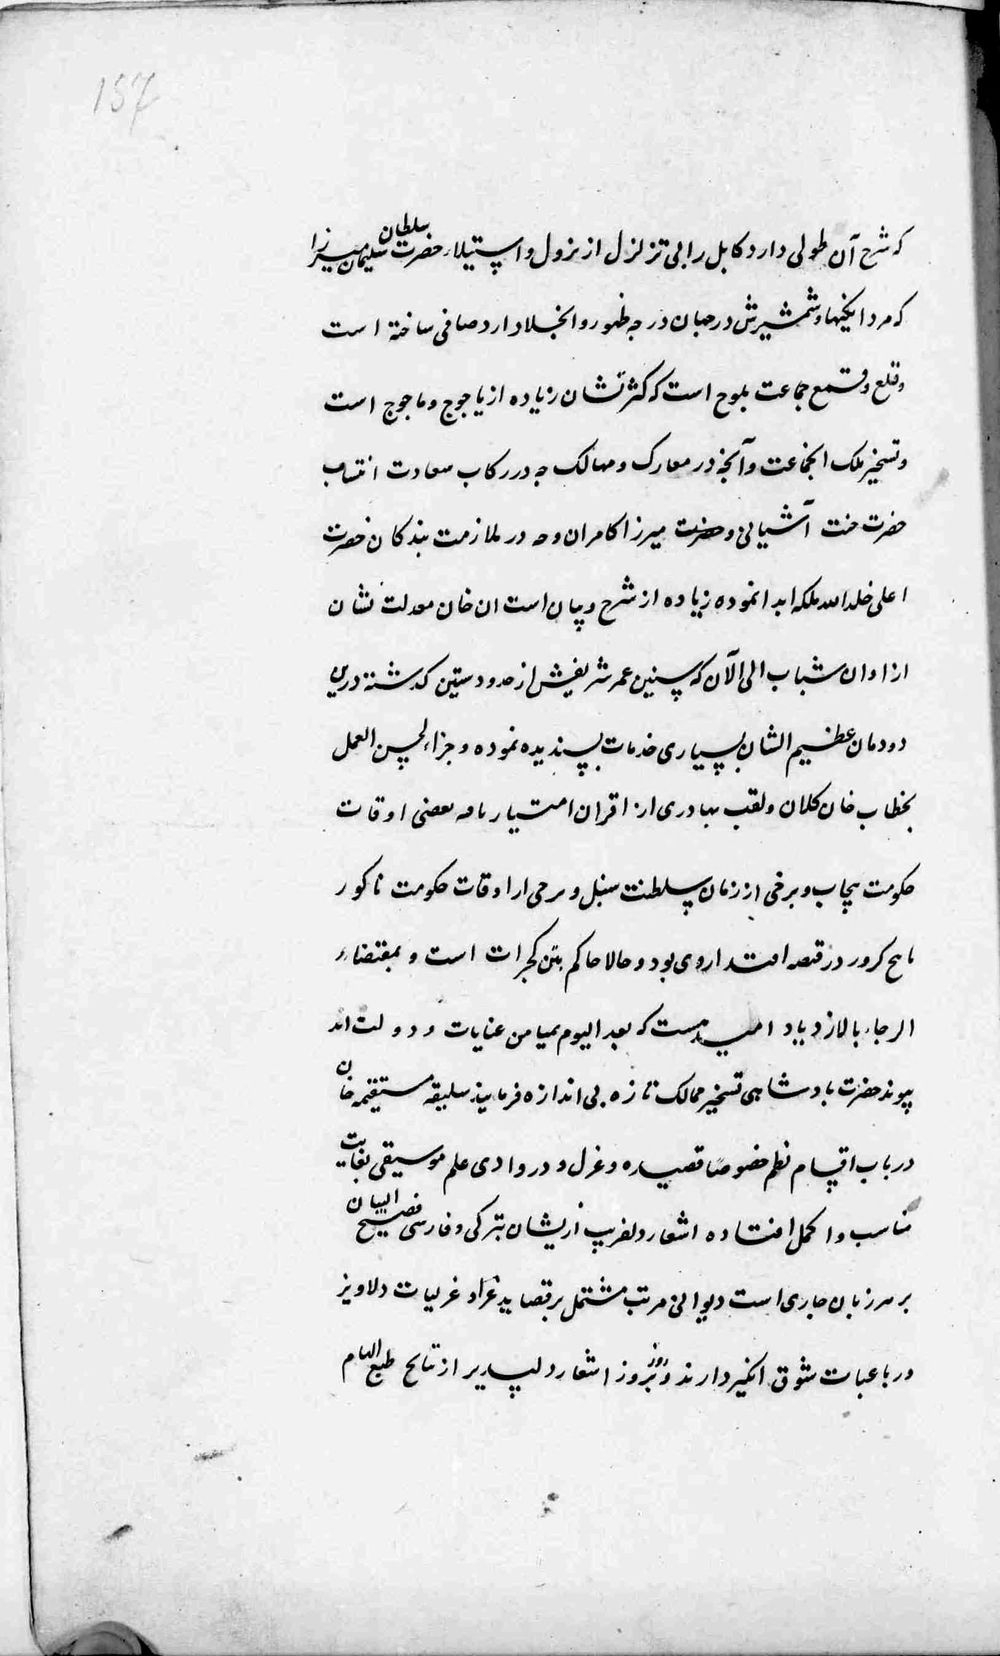 157
که شرح آن طولی دارد کابل را بی تزلزل از نزول و استیلاء حضرت سلطان سلیمان میرزا
که مردانگیها و شمشیرش در جهان درجه ظهور و انجلا دارد صافی ساخته است
و قلع و قمع جماعت بلوج است که کثرتشان زیاده از یاجوج و ماجوج است
و تسخیر ملک انجماعت و آنچه در معارک و مهالک چه در رکاب سعادت انتساب
حضرت جنت آشیانی و حضرت میرزا کامران و چه در ملازمت بندکان حضرت
اعلی خلد الله ملکه ابدا نموده زیاده از شرح و بیان است ان خان معدلت نشان
از اوان شباب الی الآن که سنین عمر شریفش از حدود ستین کذشته درین
دودمان عظیم الشان بسیاری خدمات پسندیده نموده و جزاء لحسن العمل
بخطاب خان کلان و لقب بهادری از اقران امتیاز یافته بعضی اوقات
حکومت پنجاب و برخی از زمان سلطنت سنبل و برخی از اوقات حکومت ناکور
پنج کرور در قبضه اقتدار وی بود و حالا حاکم پتن کجرات است و بمقتضاء
الرجاء بالازدیاد امیدست که بعد الیوم بمیامن عنایات و دولت ابد
پیوند حضرت بادشاهی تسخیر ممالک تازه بی اندازه فرمایند سلیقه مستقیمه خان
در باب اقسام نظم خصوصا قصیده و غزل و در وادی علم موسیقی بغایت
مناسب و اکمل افتاده اشعار دلفریب از ایشان بترکی و فارسی فصیح البیان
بر هر زبان جاری است دیوانی مرتب مشتمل بر قصاید غرا و غزلیات دلاویز
و رباعیات شوق انکیز دارند و روز بروز اشعار دلپذیر از نتایج طبع الهام